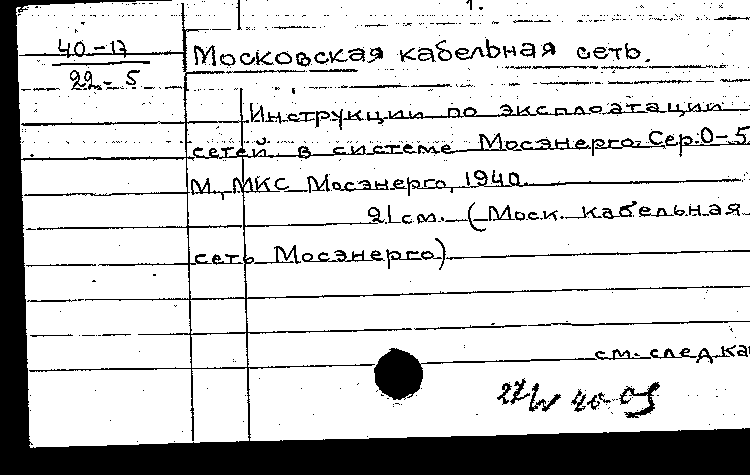 1.
40-17
22-5
Московская кабельная сеть.
Инструкции по эксплоатации
сетей в системе Мосэнерго. Сер.0-5
М., МКС Мосэнерго, 1940.
21 см. (Моск. кабельная
сеть Мосэнерго)
см. след. ка